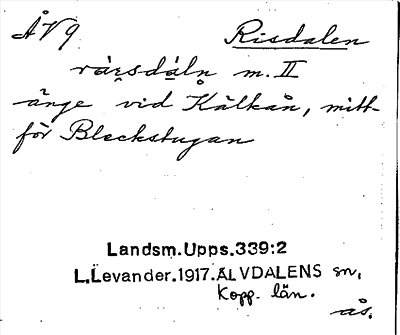 ÅV9 Risdalen
rårsdäln m. II
änge vid Kålkån, mitt-
för Bleckstugan
Landsm.Upps.339:2
L.Levander.1917.ÄLVDALENS sn,
Kopp. län.
ås.